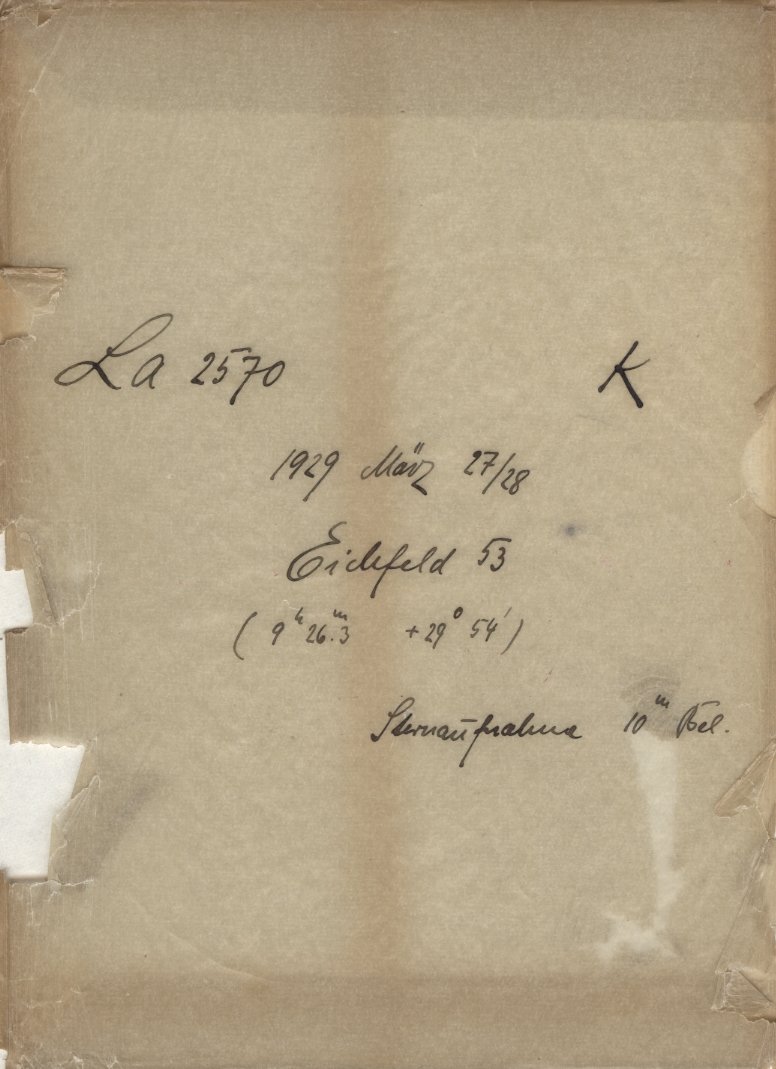 La 2570 K
1929 März 27/28
Eichfeld 53
( 9ʰ 26ᵐ.3 +29° 54′ )
Sternaufnahme 10ᵐ Bel.